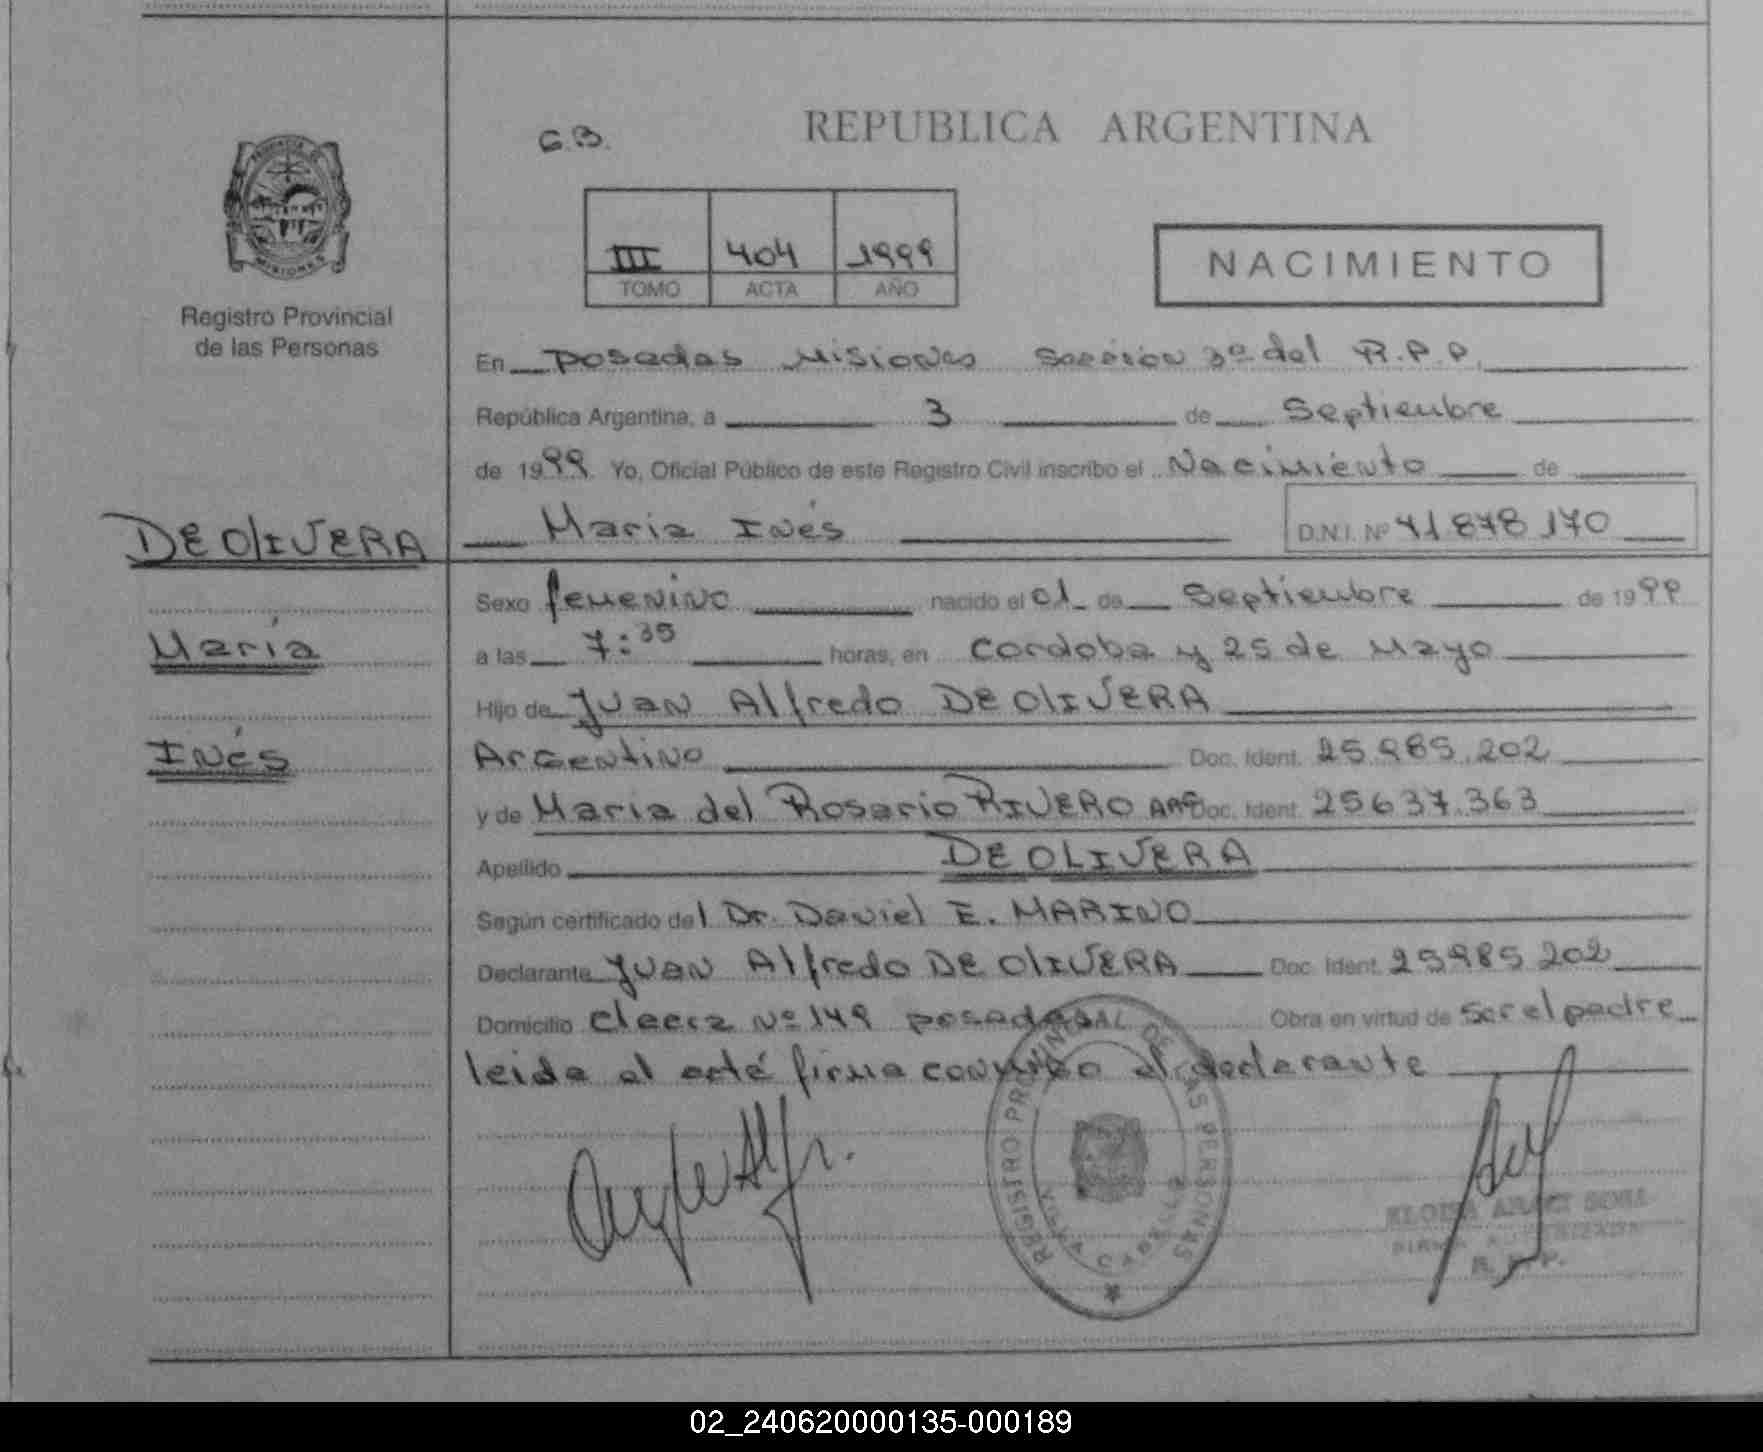 REPUBLICA ARGENTINA
G.B.
III 404 1999
TOMO ACTA AÑO
NACIMIENTO
PROVINCIA DE
MISIONES
Registro Provincial
de las Personas
En Posadas Misiones Sección 3º del R.P.P.
República Argentina, a 3 de Septiembre
de 1999 Yo, Oficial Público de este Registro Civil inscribo el Nacimiento de
Maria Inés D.N.I. Nº 41 878 170
DE OlIVERA
María
Inés
Sexo femenino nacido el 01 de Septiembre de 1999
a las 7:35 horas, en Cordoba y 25 de Mayo
Hijo de Juan Alfredo DE OlIVERA
Argentino Doc. Ident. 25.985.202
y de Maria del Rosario RIVERO ARG Doc. Ident. 25637.363
Apellido DE OLIVERA
Según certificado del Dr. Daniel E. MARINO
Declarante Juan Alfredo DE OlIVERA Doc. Ident. 25985202
Domicilio Nº 149 posadas Obra en virtud de ser el padre
leida el firma conmigo el declarante
REGISTRO PROVINCIAL DE LAS PERSONAS
VILLA CABELLO
ELOISA ARACI
FIRMA AUTORIZADA
R. P. P.
02_240620000135-000189